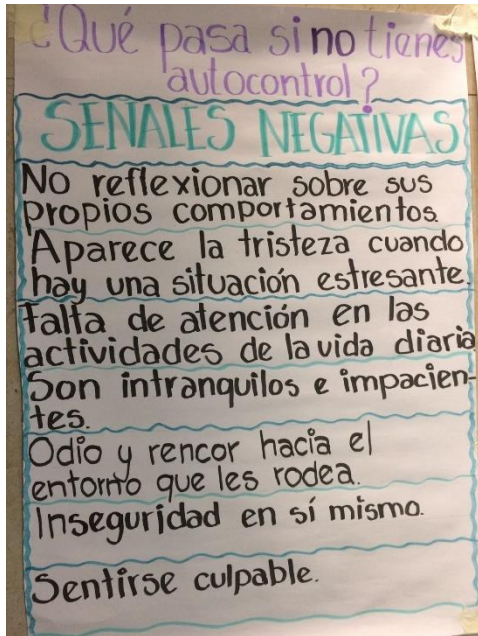 ¿Qué pasa si no tienes
autocontrol?
SEÑALES NEGATIVAS
No reflexionar sobre sus
propios comportamientos.
Aparece la tristeza cuando
hay una situación estresante.
Falta de atención en las
actividades de la vida diaria
Son intranquilos e impacien-
tes.
Odio y rencor hacia el
entorno que les rodea.
Inseguridad en sí mismo.
Sentirse culpable.